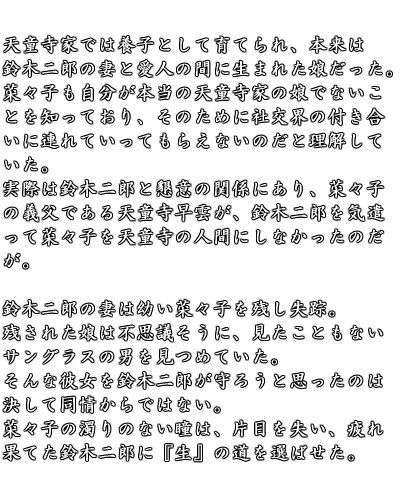 天童寺家では養子として育てられ、本来は
鈴木二郎の妻と愛人の間に生まれた娘だった。
菜々子も自分が本当の天童寺家の娘でないこ
とを知っており、そのために社交界の付き合
いに連れていってもらえないのだと理解して
いた。
実際は鈴木二郎と懇意の関係にあり、菜々子
の義父である天童寺早雲が、鈴木二郎を気遣
って菜々子を天童寺の人間にしなかったのだ
が。
鈴木二郎の妻は幼い菜々子を残し失踪。
残された娘は不思議そうに、見たこともない
サングラスの男を見つめていた。
そんな彼女を鈴木二郎が守ろうと思ったのは
決して同情からではない。
菜々子の濁りのない瞳は、片目を失い、疲れ
果てた鈴木二郎に『生』の道を選ばせた。